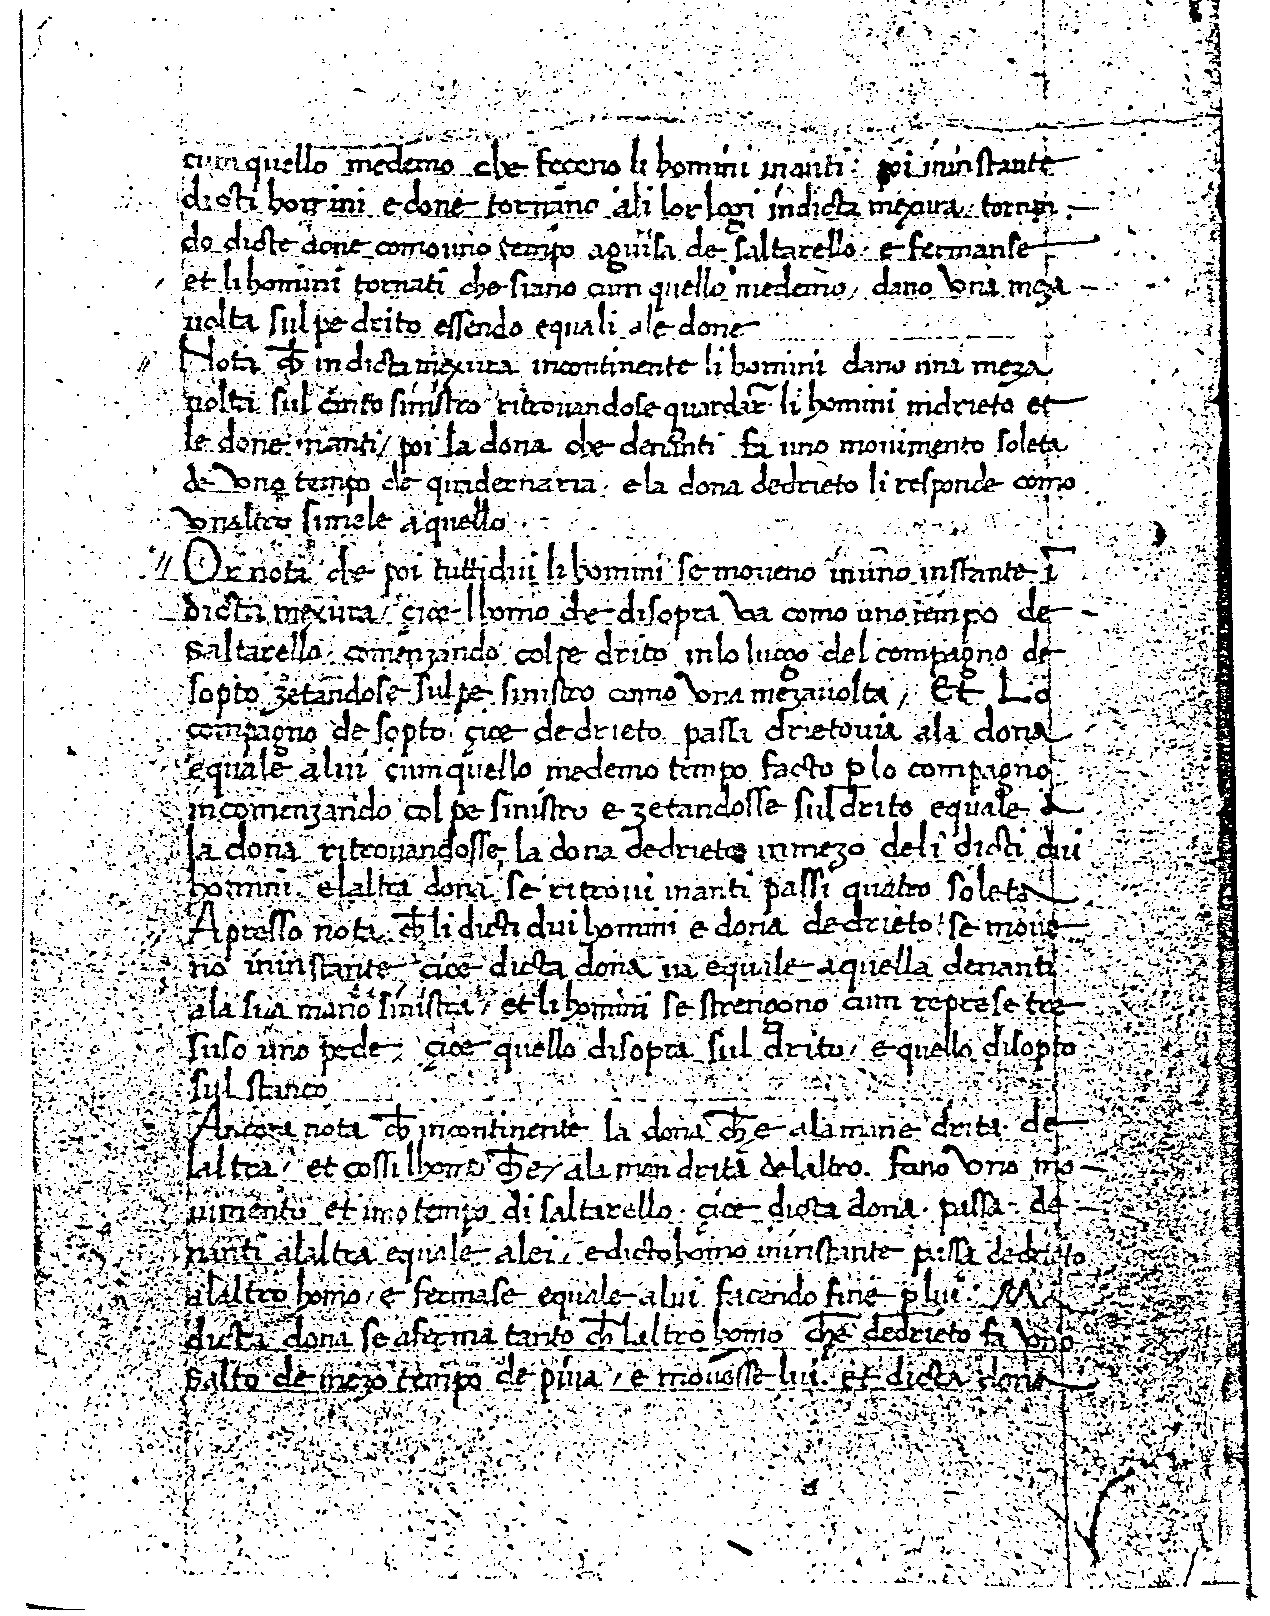 cum quello medemo che feceno li homini inanti. poi ininstante
dicti homini e done tornano ali lor logi in dicta mexura, tornan
do dicte done como uno tempo a guisa de saltarello. e fermanse
et li homini tornati che siano cum quello medemo, dano una meza
volta sul pe drito essendo equali ale done
Nota ch̄ in dicta mexura incontinente li homini dano una meza
volta sul sinistro ritrovandose guardar li homini indrieto et
le done inanti, poi la dona che denanti fa uno movimento soleta
de uno tempo de quadernaria. e la dona dedrieto li responde como
unaltro simele a quello
Or nota che poi tutti dui li homini se moveno in uno instante ī
dicta mexura, çioe lhomo che disopra va como uno tempo de
saltarello. comenzando col pe drito in lo luogo del compagno de
sopto zetandose sul pe sinistro como una meza volta, Et Lo
compagno de sopto. çioe dedrieto passa drieto via ala dona
equale a lui cum quello medemo tempo facto p lo compagno
incomenzando col pe sinistro e zetandosse sul drito equale a
la dona ritrovandosse la dona dedrieto in mezo de li dicti dui
homini. e laltra dona se ritrovi inanti passi quatro soleta
Apresso nota ch̄ li dicti dui homini e dona dedrieto se move
no ininstante, çioe dicta dona va equale a quella denanti
ala sua mano sinistra, et li homini se strengono cum represe tre
suso uno pede, çioe quello disopra sul drito, e quello disopto
sul stanco
Ancora nota ch̄ incontinente la dona ch̄ e ala mane drita de
laltra, et cossi lhomo ch̄ e, ala man drita de laltro. fano uno mo
vimento et uno tempo di saltarello. çioe dicta dona. passa de
nanti alaltra equale a lei, e dicto homo ininstante passa dedrieto
alaltro homo, e fermase equale a lui facendo fine p lui. Ma
dicta dona se aferma tanto ch̄ laltro homo ch̄ e dedrieto fa uno
salto de mezo tempo de piva, e movesse lui. et dicta dona